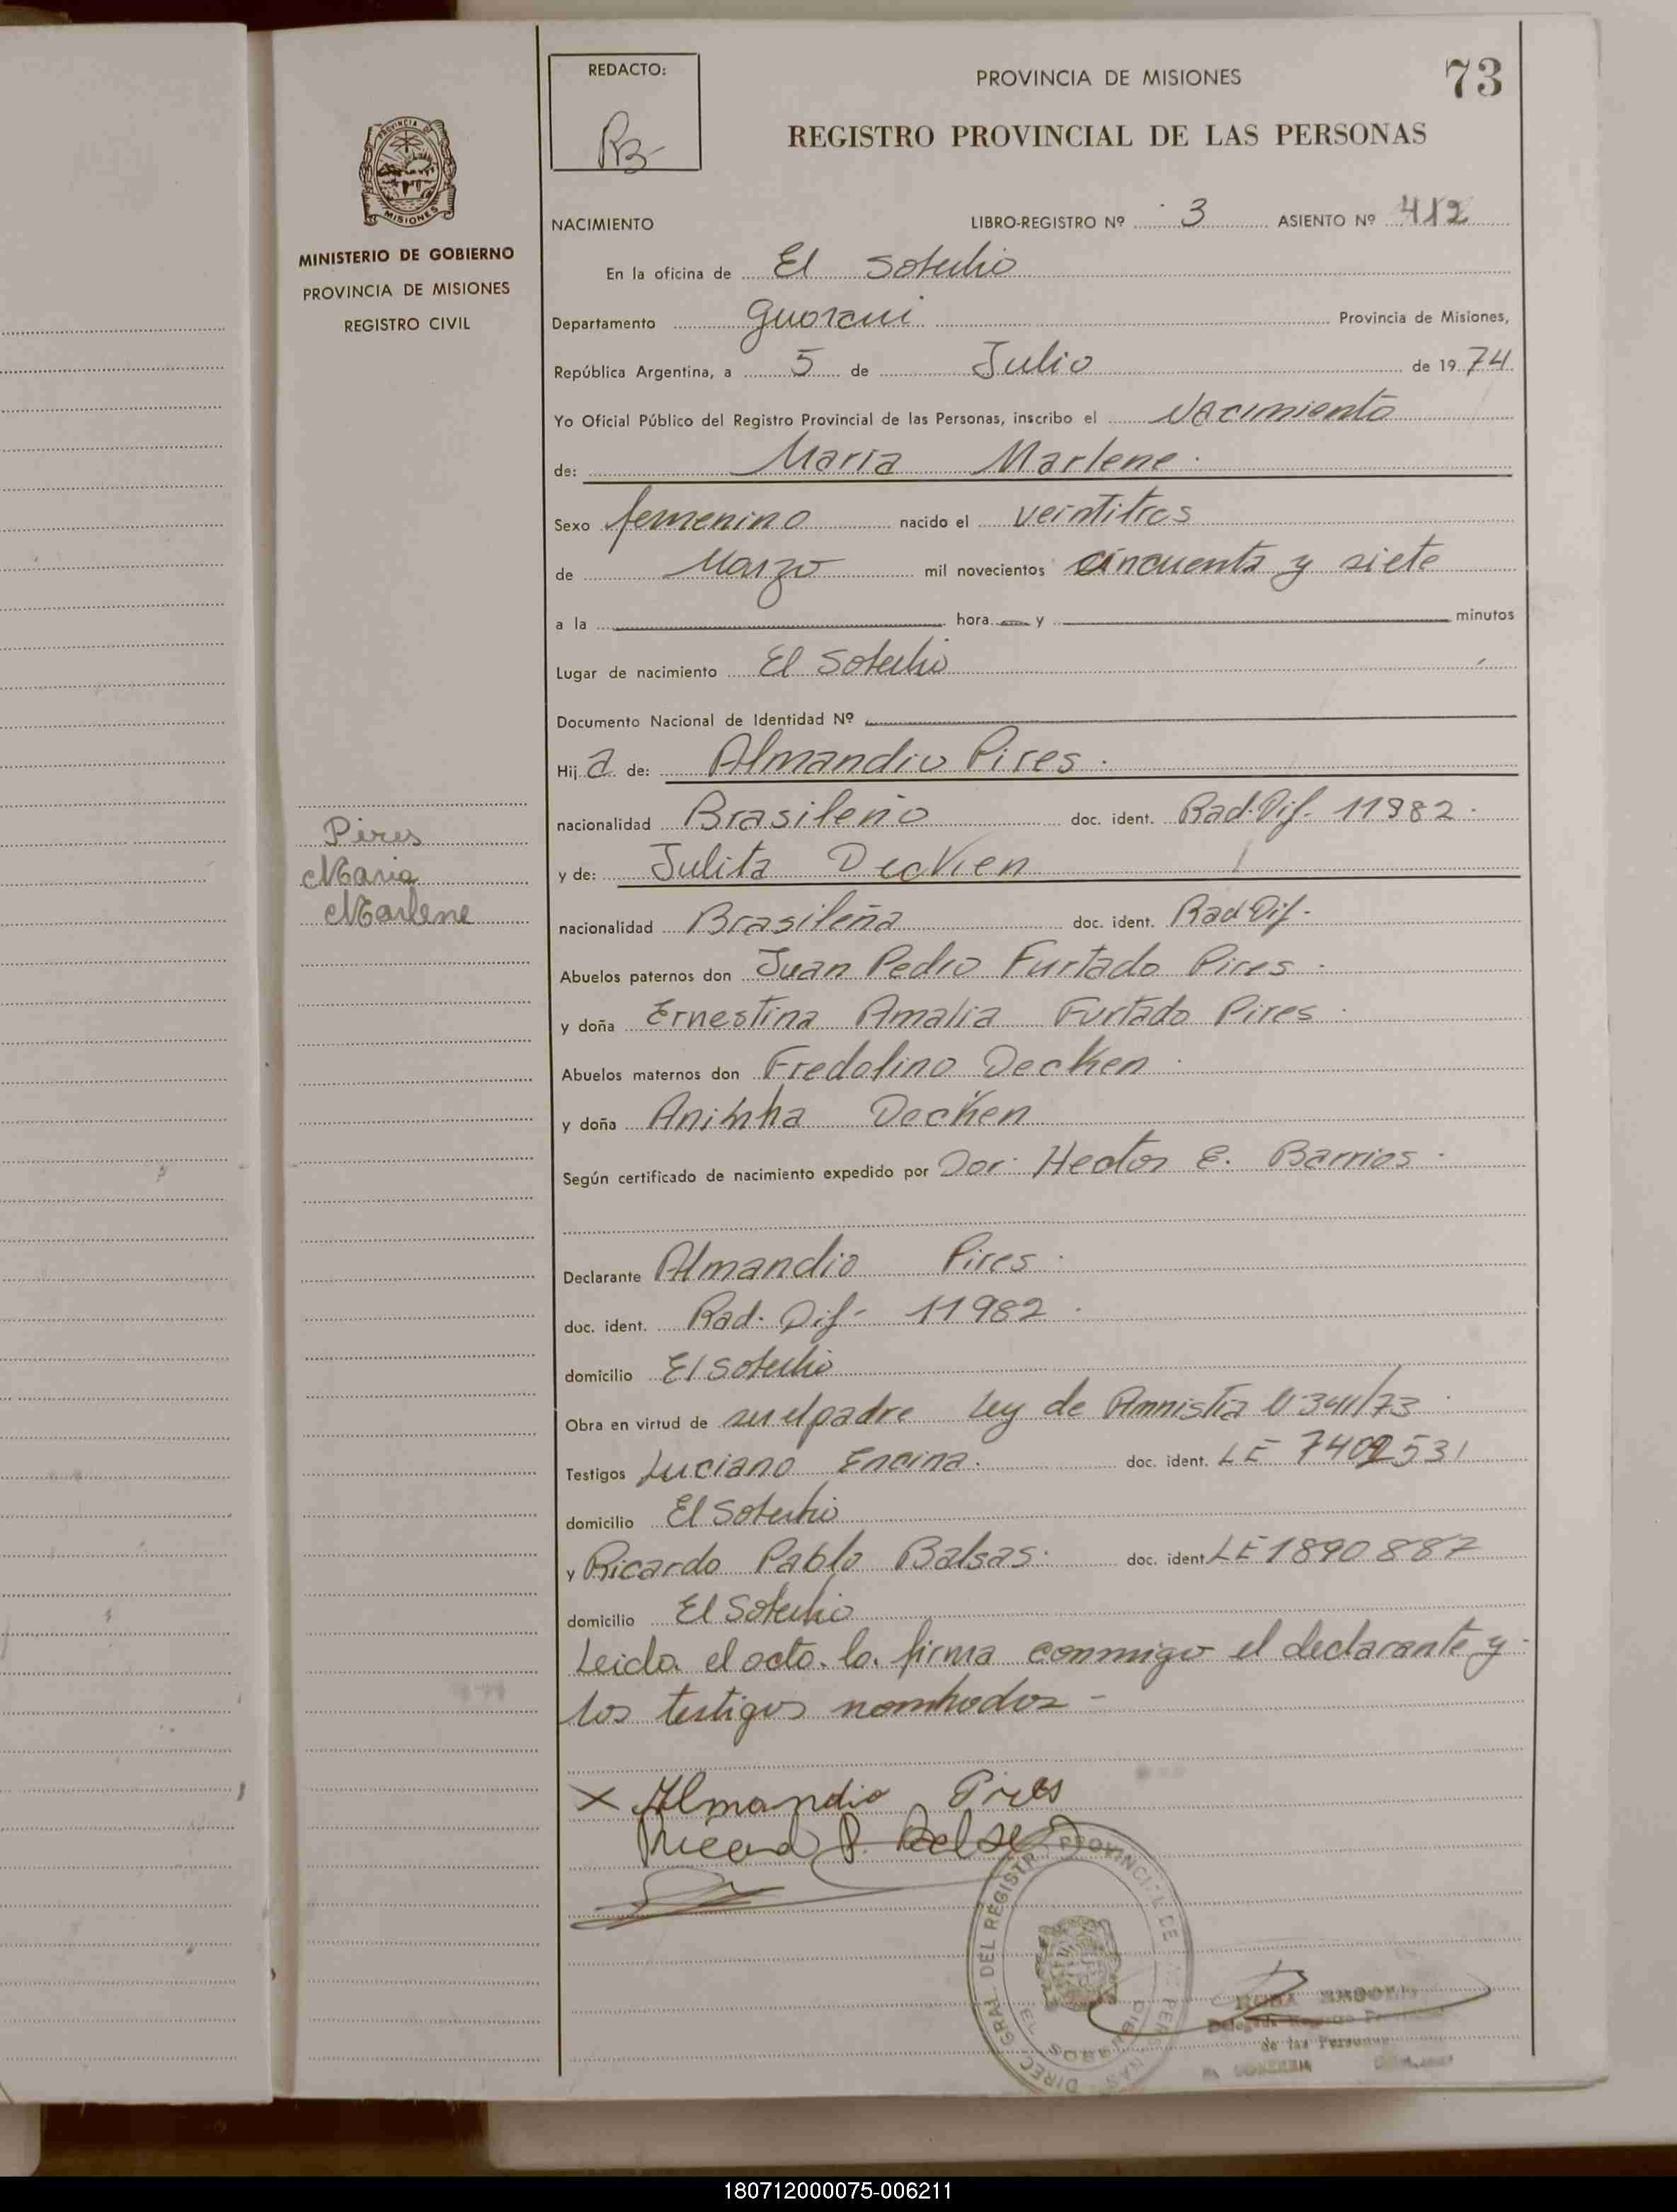 REDACTO:
PROVINCIA DE MISIONES
73
REGISTRO PROVINCIAL DE LAS PERSONAS
PROVINCIA DE
MISIONES
MINISTERIO DE GOBIERNO
PROVINCIA DE MISIONES
REGISTRO CIVIL
NACIMIENTO LIBRO-REGISTRO Nº 3 ASIENTO Nº 412
En la oficina de El Soberbio
Departamento Guarani Provincia de Misiones,
República Argentina, a 5 de Julio de 1974
Yo Oficial Público del Registro Provincial de las Personas, inscribo el Nacimiento
de: Maria Marlene.
Sexo femenino nacido el veintitres
de Marzo mil novecientos cincuenta y siete
a la hora y minutos
Lugar de nacimiento El Soberbio
Documento Nacional de Identidad Nº
Hija de: Almandio Pires.
nacionalidad Brasileño doc. ident. Rad. Dif. 11982.
y de: Julita Decken
nacionalidad Brasileña doc. ident. Rad Dif.
Abuelos paternos don Juan Pedro Furtado Pires.
y doña Ernestina Amalia Furtado Pires.
Abuelos maternos don Fredolino Decken.
y doña Decken
Según certificado de nacimiento expedido por Hector E. Barrios.
Declarante Almandio Pires.
doc. ident. Rad. Dif- 11982.
domicilio El Soberbio
Obra en virtud de ser el padre Ley de Amnistia
Testigos Luciano Encina. doc. ident. LE 7402531
domicilio El Soberbio
y Ricardo Pablo Balsas. doc. ident LE 1890887
domicilio El Soberbio
Leida el acta la firma conmigo el declarante y
los testigos nombrados -
Pires
Maria
Marlene
X Almandio Pires
DIREC. GRAL. DEL REGISTR PROVINCIAL DE PERSONAS
EL SOBERBIO
de las Personas
180712000075-006211